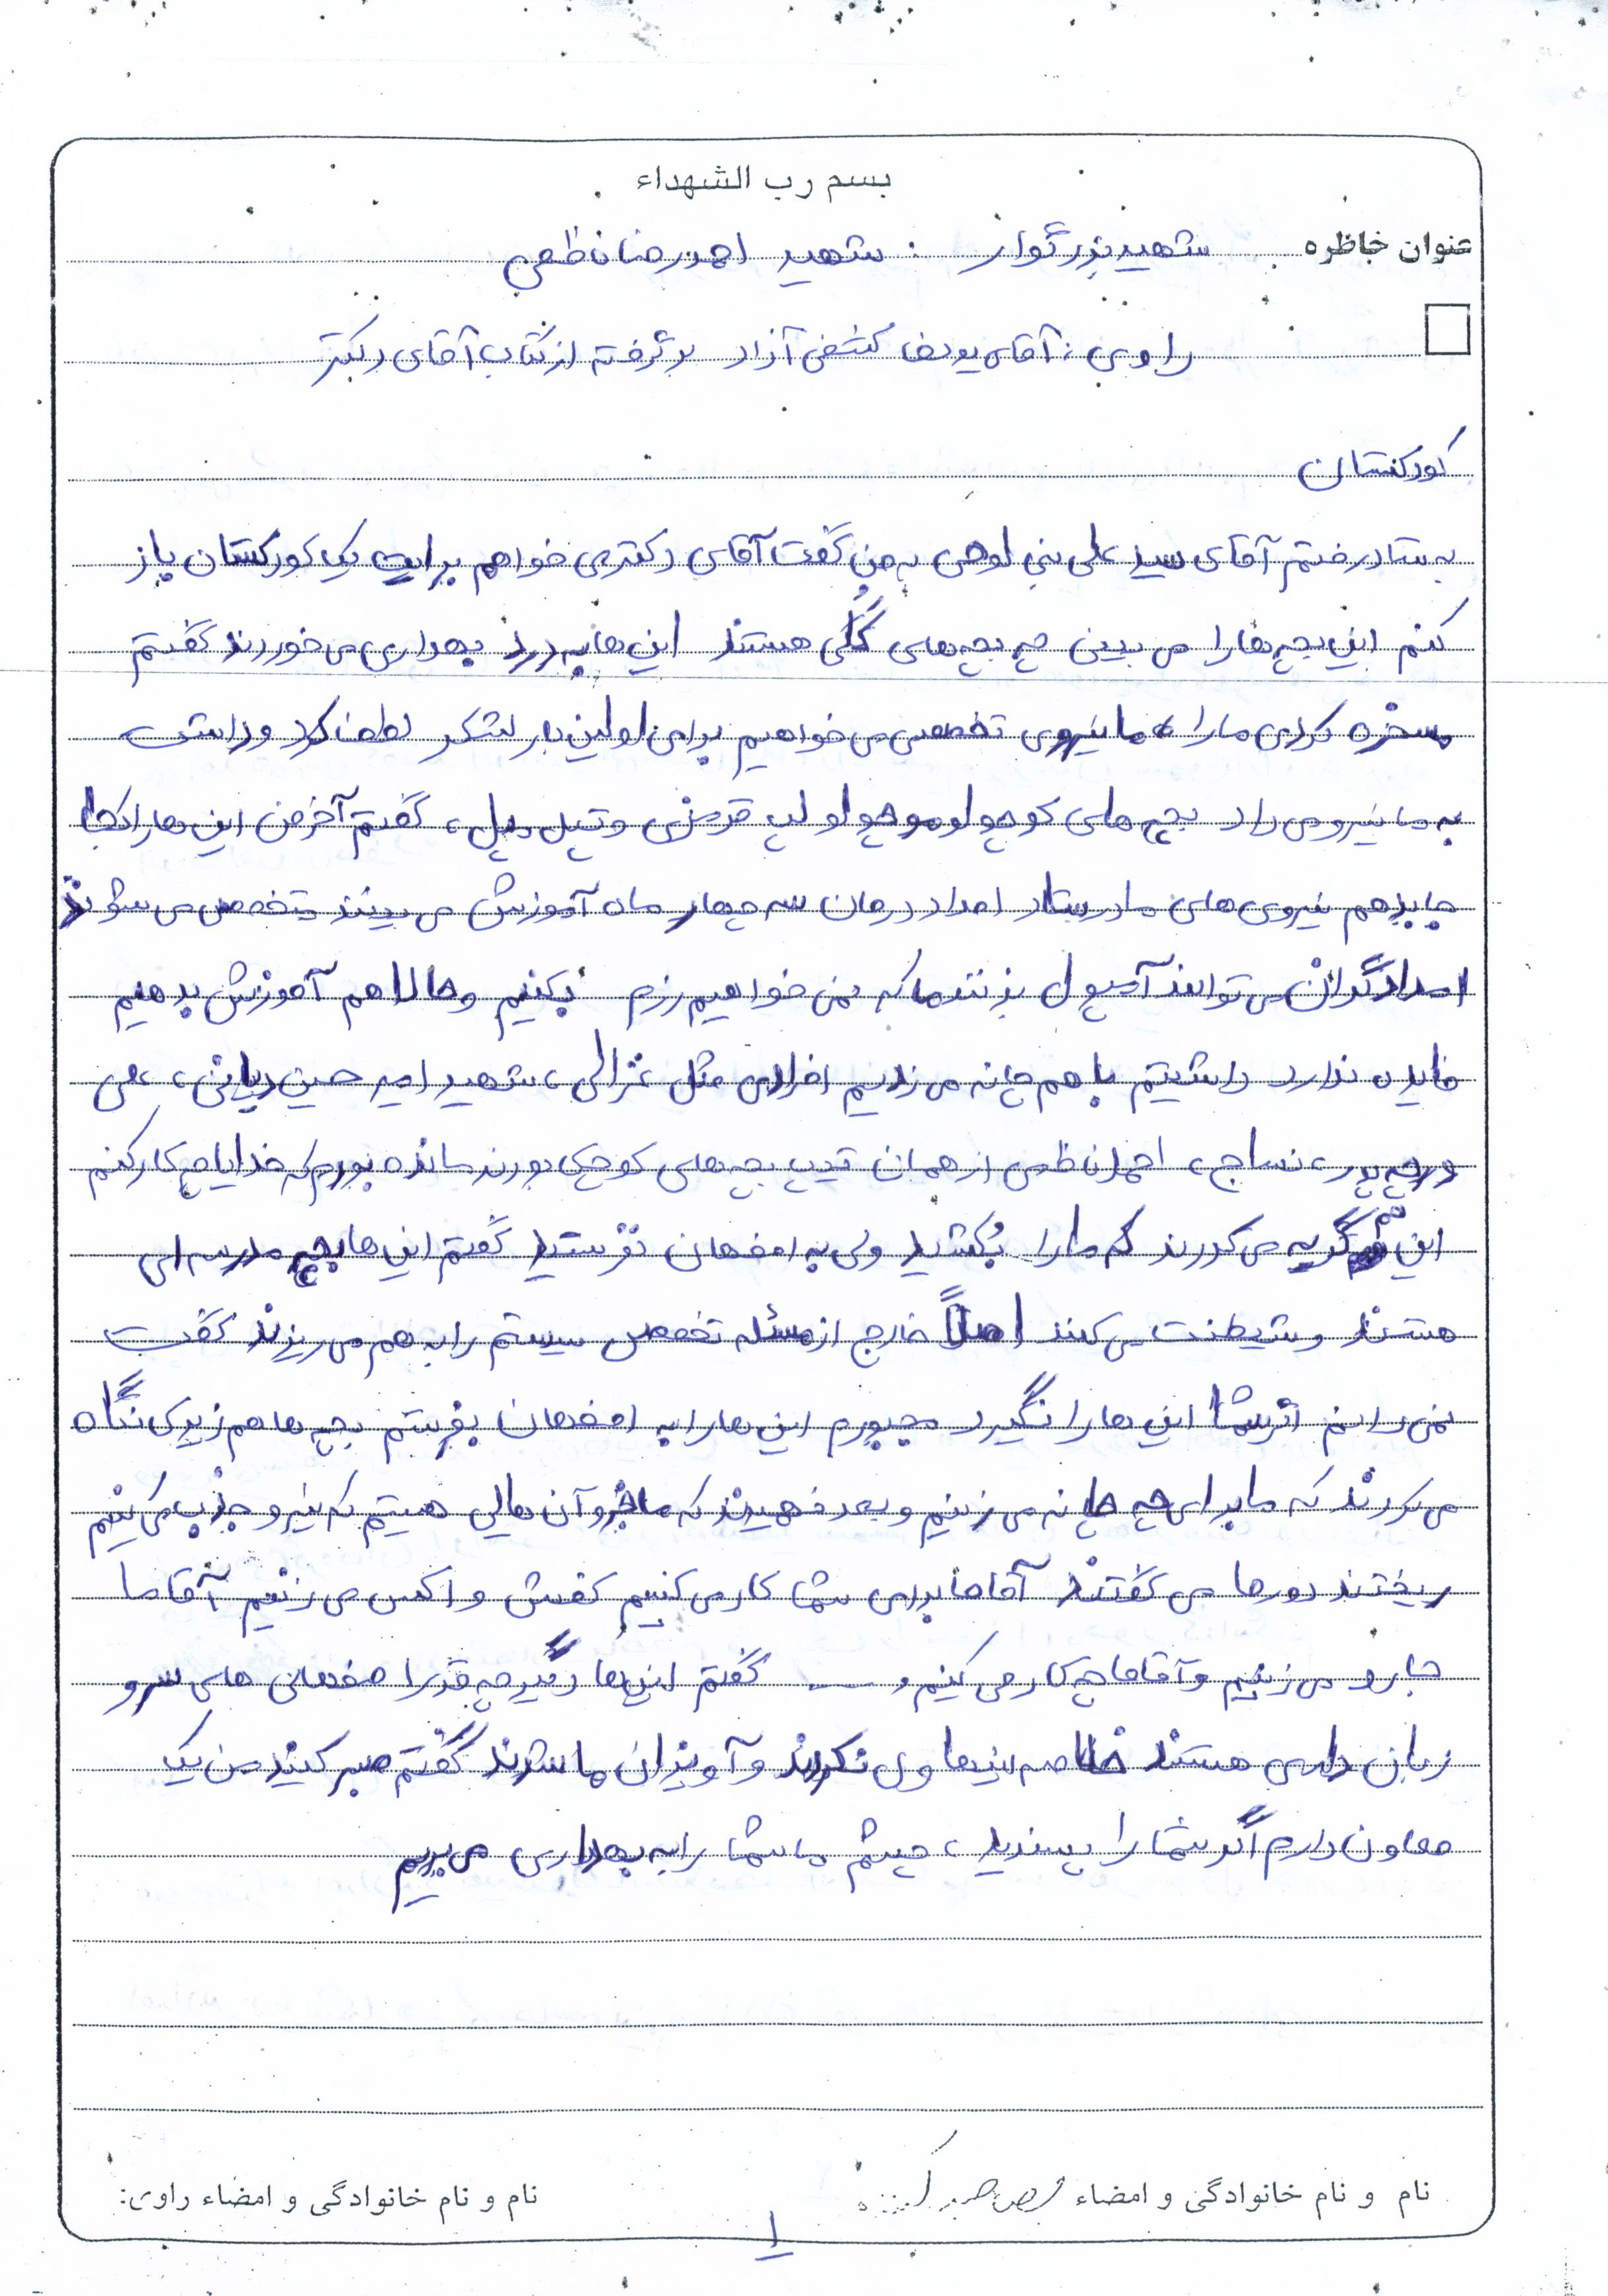 بسم رب الشهداء
عنوان خاطره شهید بزرگوار : شهید احمدرضا ناظمی
راوی : آقای یوسف کشفی آزاد برگرفته از کتاب آقای دکتر
کودکستان
به ستاد رفتم آقای سید علی بنی لوحی به من گفت آقای دکتر می خواهم برایت یک کودکستان باز
کنم این بچه ها را می بینی چه بچه های گُلی هستند این ها به درد بهداری می خورند گفتم
مسخره کردی ما را ، ما نیروی تخصصی می خواهیم برای اولین بار لشکر لطف کرد و داشت
به ما نیرو می داد بچه های کوچولو موچولو لپ قرمزی و تپل مپل ، گفتم آخر من این ها را کجا
جا بدهم نیروی های ما در ستاد امداد درمان سه چهار ماه آموزش می بینند متخصص می شوند
امدادگران می توانند آمپول بزنند ما که نمی خواهیم رزم بکنیم و حالا هم آموزش بدهیم
فایده ندارد داشتیم با هم چانه می زدیم افرادی مثل غزالی ، شهید امیر حسین دیانی ، می
ورچه پور ، نساج ، احمد ناظمی از همان تیپ بچه های کوچک بودند مانده بودم که خدایا چکار کنم
این گریه می کردند که ما را بکشید ولی به اصفهان نفرستید گفتم این ها بچه مدرسه ای
هستند و شیطنت می کنند اصلاً خارج از مسئله تخصص سیستم را به هم می ریزند گفت
نمی دانم اگر شما این ها را نگیرد مجبورم این ها را به اصفهان بفرستم بچه ها هم زیرکی نگاه
می کردند که ما برای چه چانه می زنیم و بعد فهمیدند که ما جزو آن هایی هستیم که نیرو جذب می کنیم
ریختند دور ما می گفتند آقا ما برای شما کار می کنیم کفش واکس می زنیم آقا ما
جارو می زنیم و آقا ما چه کار می کنیم و ... گفتم این ها دیگر چه قدر اصفهانی های سر و
زبان داری هستند خلاصه این ها ول نکردند و آویزان ما شدند گفتم صبر کنید من یک
معاون دارم اگر شما را پسندید ، چشم ما شما را به بهداری می بریم
نام و نام خانوادگی و امضاء
نام و نام خانوادگی و امضاء راوی:
۱